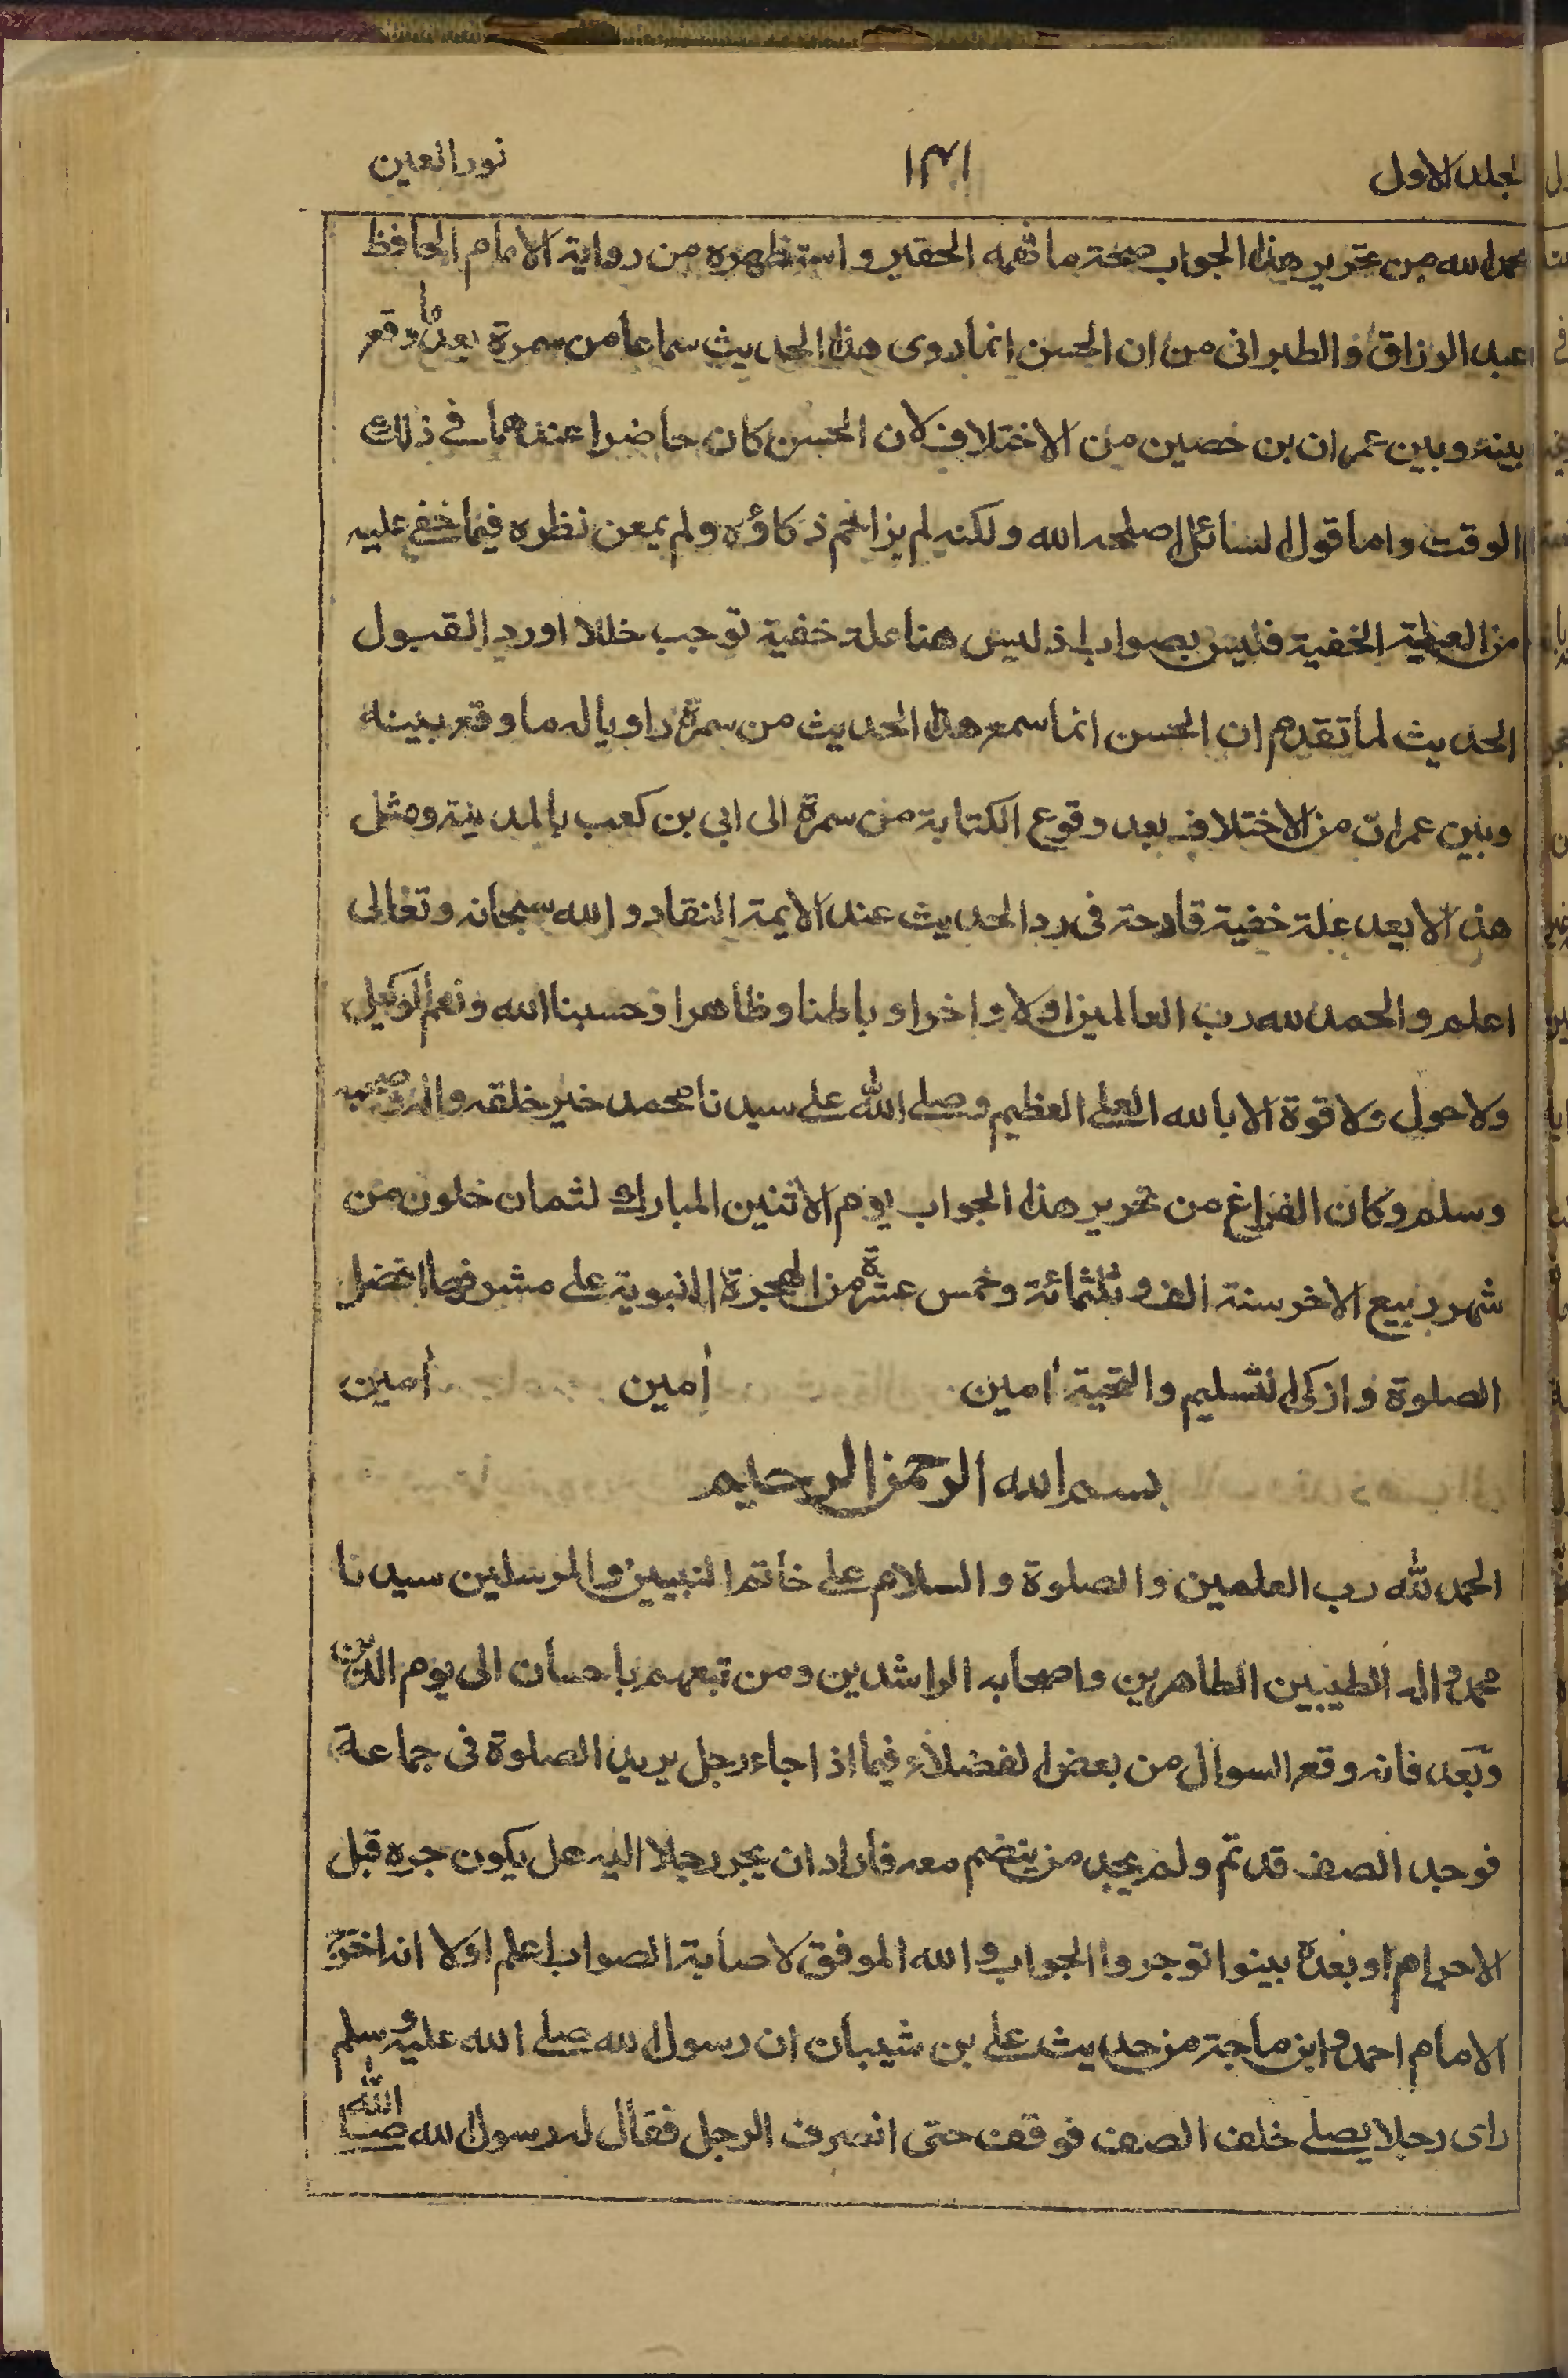 لجلد الاول ١٣١ نور العين
بحمد الله من تحرير هذا الجواب صحة ما فهمه الحقير واستظهره من رواية الامام الحافظ
عبد الرزاق والطبرانى من ان الحسن انما روى هذا الحديث سماعا من سمرة بعد ما وقع
بينه وبين عمران بن حصين من الاختلاف لان الحسن كان حاضرا عندهما فى ذلك
الوقت واما قول السائل اصلحه الله ولكنه لم ذكاؤه ولم يمعن نظره فيما خفى عليه
من العلة الخفية فليس بصواب اذ ليس هنا علة خفية توجب خللا او رد القبول
الحديث لما تقدم ان الحسن انما سمع هذا الحديث من سمرة راويا له ما وقع بينه
وبين عمران من الاختلاف بعد وقوع الكتابة من سمرة الى ابى بن كعب بالمدينة ومثل
هذا لا يعد علة خفية قادحة فى رد الحديث عند الايمة النقاد والله سبحانه وتعالى
اعلم والحمد لله رب العالمين اولا واخرا وباطنا وظاهرا وحسبنا الله ونعم الوكيل
ولا حول ولا قوة الا بالله العلى العظيم وصلى الله على سيدنا محمد خير خلقه واله وصحبه
وسلم وكان الفراغ من تحرير هذا الجواب يوم الاثنين المبارك لثمان خلون من
شهر ربيع الاخر سنة الف وثلثمائة وخمس عشرة من الهجرة النبوية على مشرفها افضل
الصلوة وازكى التسليم والتحية أمين أمين أمين
بسم الله الرحمن الرحيم
الحمد لله رب العلمين والصلوة والسلام على خاتم النبيين والمرسلين سيدنا
محمد واله الطيبين الطاهرين واصحابه الراشدين ومن تبعهم باحسان الى يوم الدين
وبعد فانه وقع السوال من بعض الفضلاء فيما اذا جاء رجل يريد الصلوة فى جماعة
فوجد الصف قد تم ولم يجد من ينضم معه فأراد ان يجر رجلا اليه هل يكون جره قبل
الاحرام او بعده بينوا توجروا الجواب والله الموفق لاصابة الصواب اعلم اولا انه اخرج
الامام احمد وابن ماجة من حديث على بن شيبان ان رسول الله صلى الله عليه وسلم
راى رجلا يصلى خلف الصف فوقف حتى انصرف الرجل فقال له رسول الله صلى الله